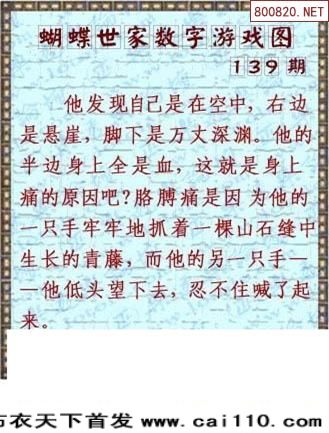 800820.NET
蝴蝶世家数字游戏图
139期
他发现自己是在空中，右边
是悬崖，脚下是万丈深渊。他的
半边身上全是血，这就是身上
痛的原因吧?胳膊痛是因 为他的
一只手牢牢地抓着一棵山石缝中
生长的青藤，而他的另一只手—
—他低头望下去，忍不住喊了起
来。
衣天下首发 www.cai110.com